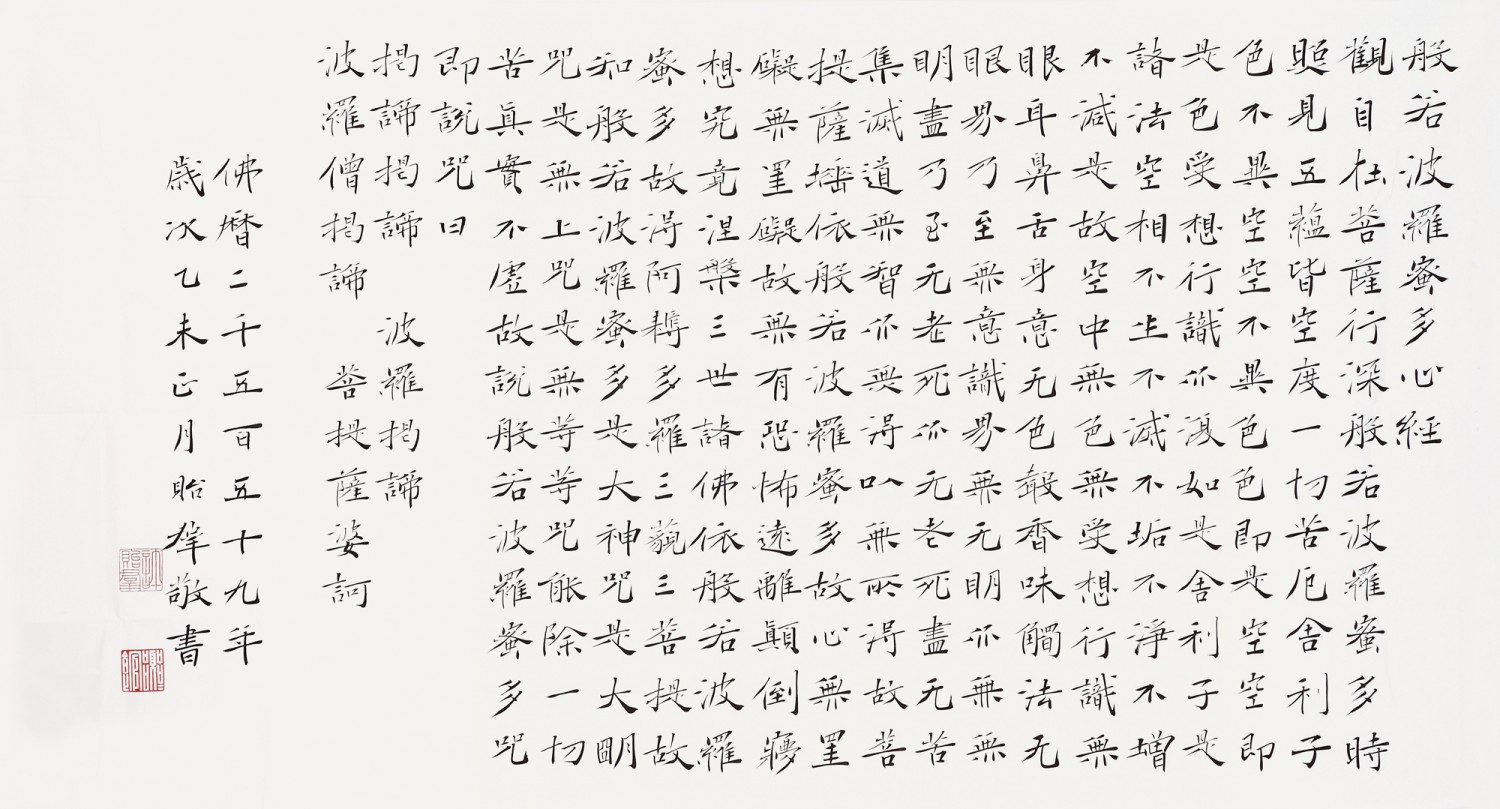 般若波羅蜜多心經
觀自在菩薩行深般若波羅蜜多時
照見五蘊皆空度一切苦厄舍利子
色不異空空不異色色即是空空即
是色受想行識亦復如是舍利子是
諸法空相不生不滅不垢不淨不增
不減是故空中無色無受想行識無
眼耳鼻舌身意无色聲香味觸法无
眼界乃至無意識界無无明亦無無
明盡乃至无老死亦无老死盡无苦
集滅道無智亦無得以無所得故菩
提薩埵依般若波羅蜜多故心無罣
礙無罣礙故無有恐怖遠離顛倒夢
想究竟涅槃三世諸佛依般若波羅
蜜多故得阿耨多羅三藐三菩提故
知般若波羅蜜多是大神咒是大明
咒是無上咒是無等等咒能除一切
苦眞實不虛故說般若波羅蜜多咒
即說咒曰
揭諦揭諦 波羅揭諦
波羅僧揭諦 菩提薩婆訶
佛曆二千五百五十九年
歲次乙未正月貽羣敬書
許貽羣